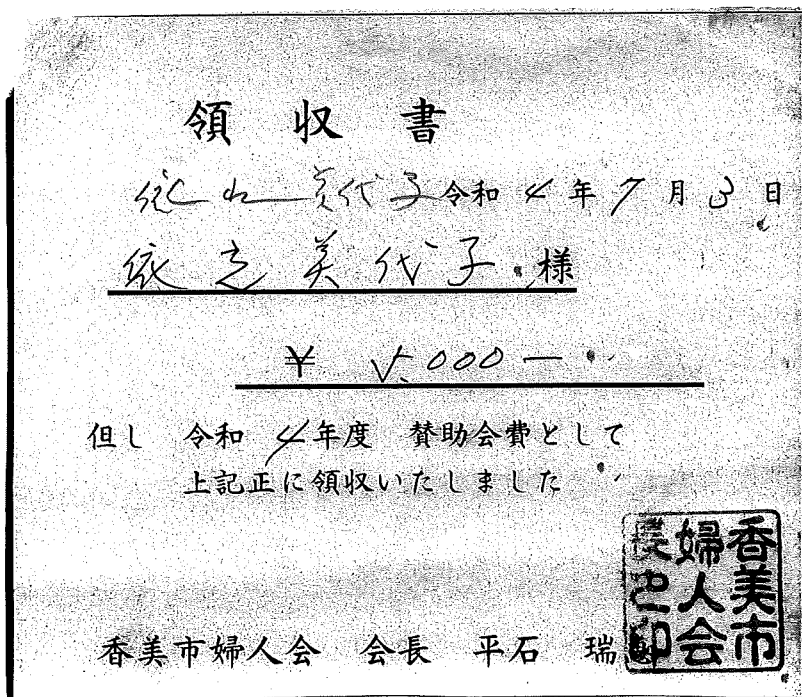 領収書
依光美代子 令和4年7月3日
依光美代子 様
¥ 5,000 ー
但し 令和 4年度 賛助会費として
上記正に領収いたしました
香美市婦人会 会長 平石 瑞
香美市婦人会長之印